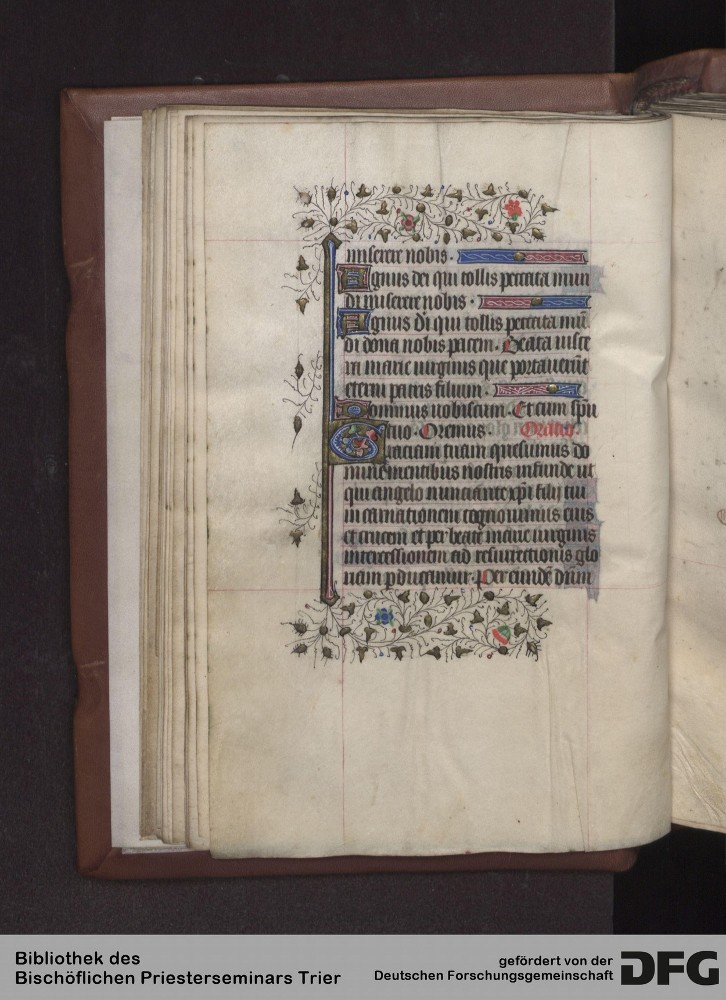 miserere nobis.
Agnus dei qui tollis peccata mun
di miserere nobis.
Agnus di qui tollis peccata mū
di dona nobis pacem. Beata visce
ra marie virginis que portaverūt
eterni patris filium.
Dominus vobiscum. Et cum spū
tuo. Oremus. Oratio.
Graciam tuam quesumus do
mine mentibus nostris infunde ut
qui angelo nunciante xpi filij tui
incarnationem cognovimus eius
et crucem et per beate marie virginis
intercessionem ad resurrectionis glo
riam pducamur. Per eundē dnm
Bibliothek des
Bischöflichen Priesterseminars Trier
gefördert von der
Deutschen Forschungsgemeinschaft
DFG